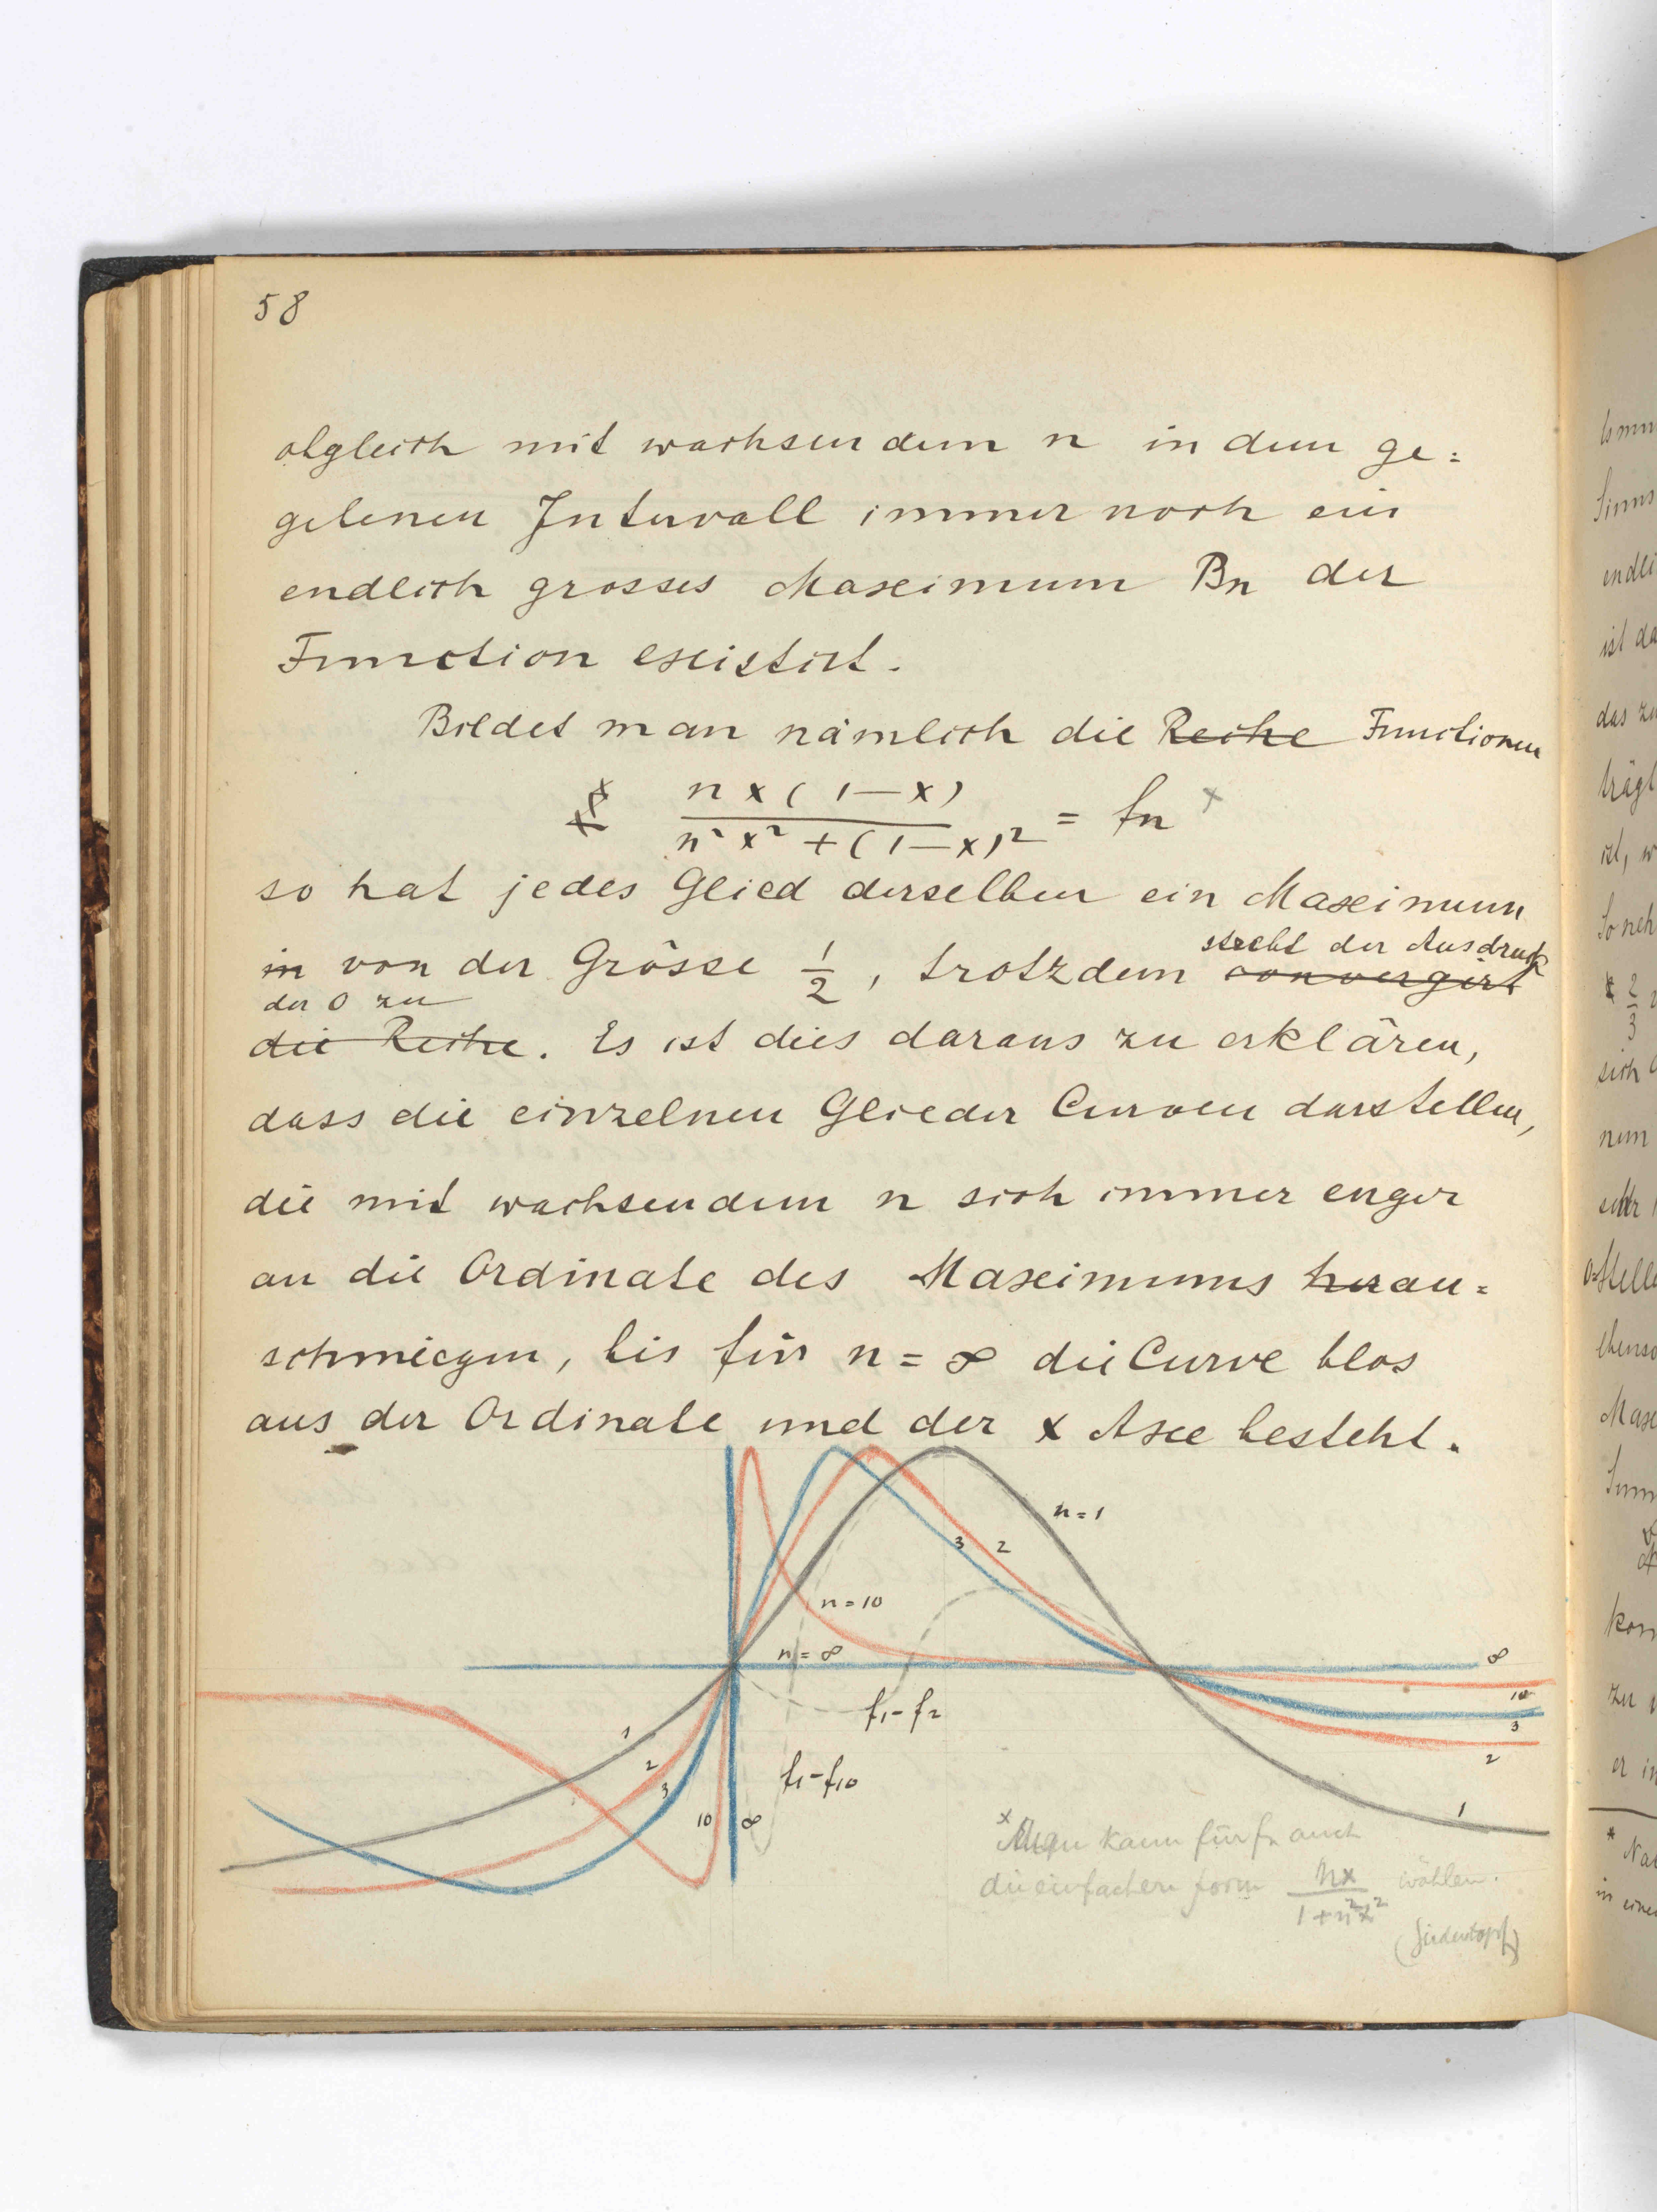 58
obgleich mit wachsendem n in dem ge=
gebenen Intervall immer noch ein
endlich grosses Maximum Bn der
Function existirt.
Bildet man nämlich die Reihe Functionen
nx(1-x) / n²x² + (1-x)² = fn ×
so hat jedes Glied derselben ein Maximum
in von der Grösse 1/2, trotzdem convergirt
strebt der Ausdruck
der 0 zu
die Reihe. Es ist dies daraus zu erklären,
dass die einzelnen Glieder Curven darstellen,
die mit wachsendem n sich immer enger
an die Ordinate des Maximums heran=
schmiegen, bis für n = ∞ die Curve blos
aus der Ordinate und der x Axe besteht.
n=1
3 2
n=10
n=∞
∞
10
3
2
1
f₁-f₂
f₁-f₁₀
1
2
3
10 ∞
× Man kann für fn auch
die einfachere Form nx / 1+n²x² wählen.